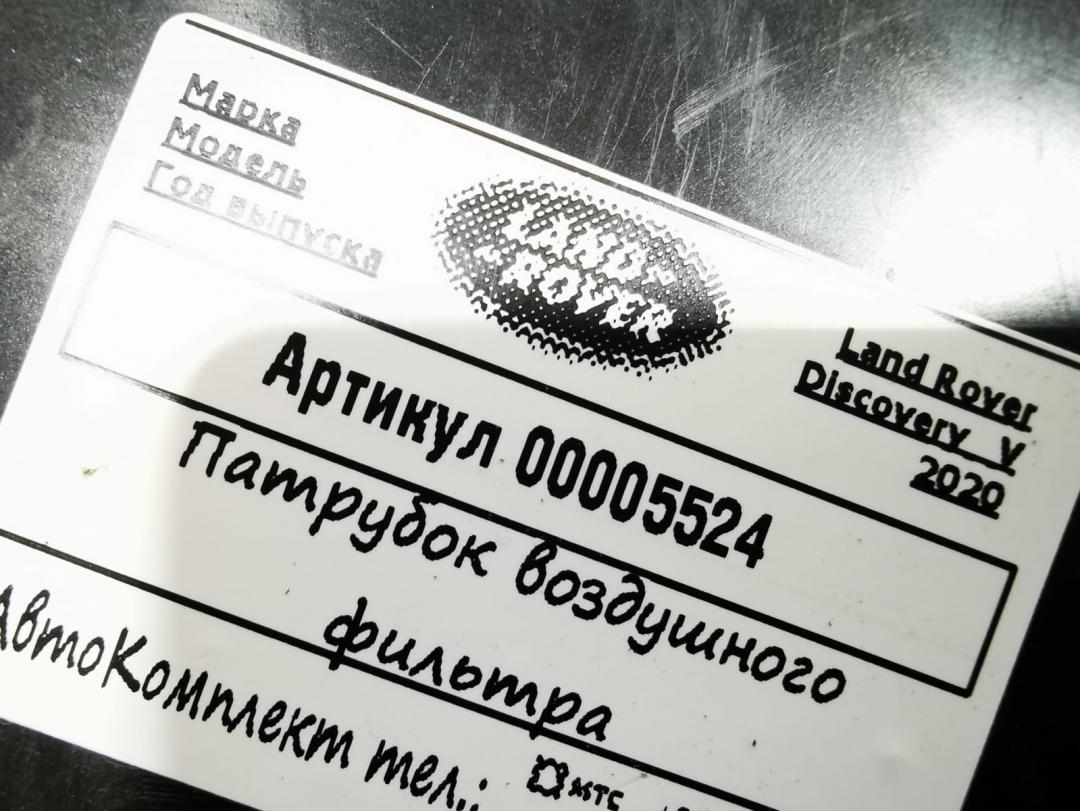 Марка
Модель
Год выпуска
LAND-
ROVER
Land Rover
Discovery V
2020
Артикул 00005524
Патрубок воздушного
фильтра
АвтоКомплект тел.:
МТС